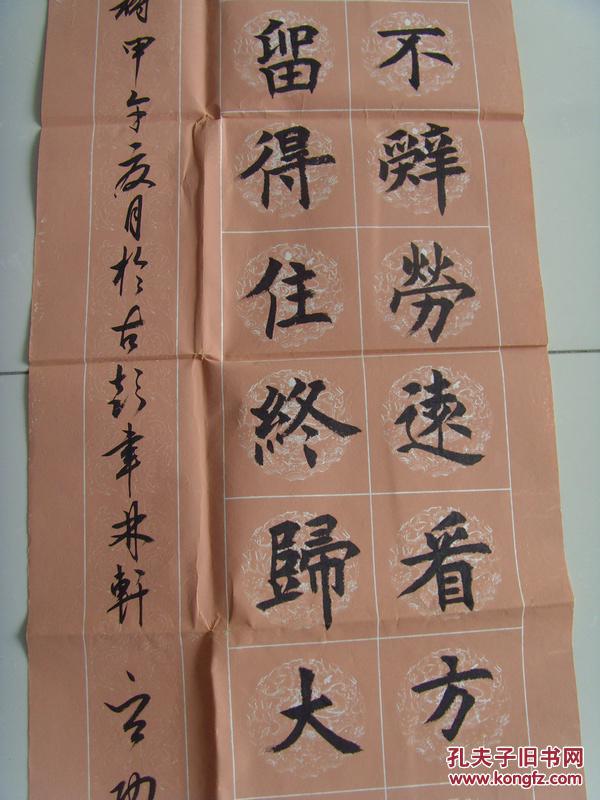 不辭勞逺看方
留得住終歸大
甲午夏月於古彭林軒
孔夫子旧书网
www.kongfz.com